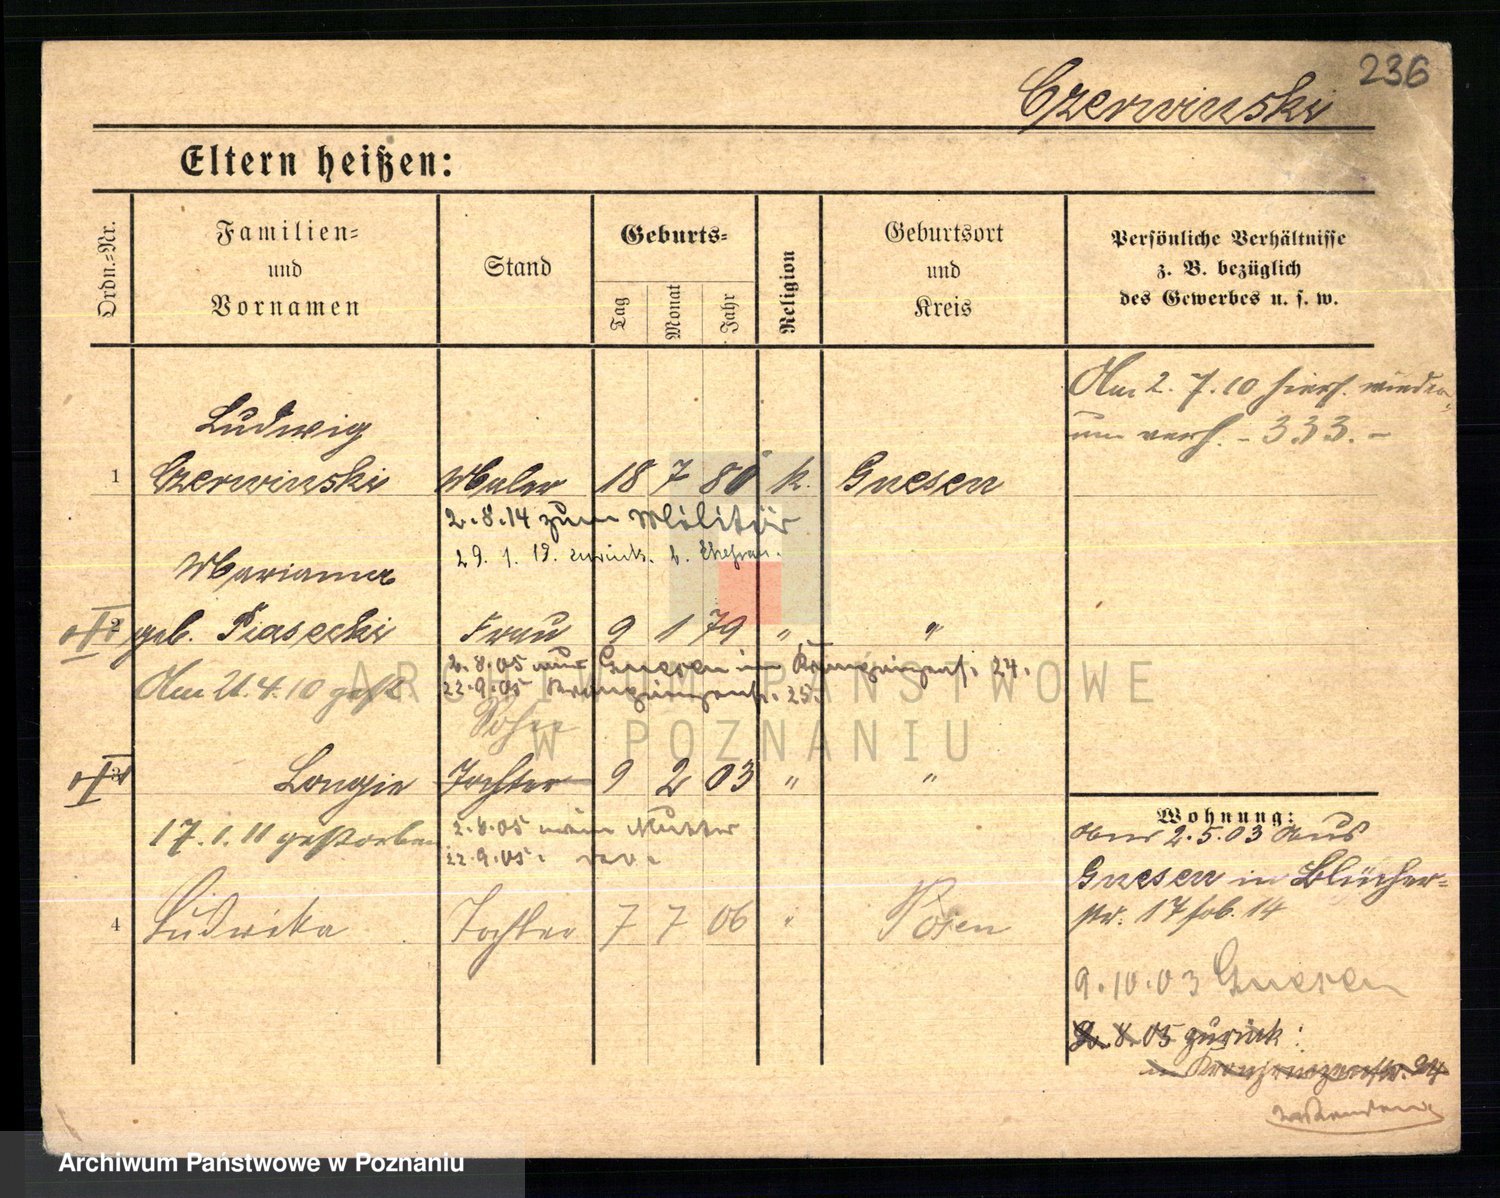 236
Czerwinski
Eltern heißen:
Ordn.-Nr.
Familien-
und
Vornamen
Stand
Geburts-
Tag
Monat
Jahr
Religion
Geburtsort
und
Kreis
Persönliche Verhältnisse
z. B. bezüglich
des Gewerbes u. s. w.
Am 2. 7. 10 hiers. wieder-
um verh. - 333. -
Ludwig
1 Czerwinski Maler 18 7 80 k. Gnesen
2. 8. 14 zum Militär
29. 1. 19. zurück. b. Ehefrau.
Marianna
2 geb. Piasecki Frau 9 1 79 " "
2. 8. 05 aus Gnesen in Kronprinzenstr. 24.
Am 21. 4. 10 gest.
22. 9. 05 Kronprinzenstr. 25.
Sohn
3 Longin Tochter 9 2 03 " "
17. 1. 11 gestorben
2. 8. 05 wie Mutter
22. 9. 05.
4 Ludwika Tochter 7 7 06 " Posen
Wohnung:
2. 5. 03 aus
Gnesen in Blücher-
str. 17 14
9. 10. 03 Gnesen
2. 8. 05 zurück:
in Kronprinzenstr. 24
ARCHIWUM PAŃSTWOWE
W POZNANIU
Archiwum Państwowe w Poznaniu